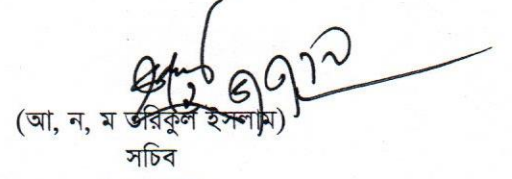 (আ, ন, ম তরিকুল ইসলাম)
সচিব